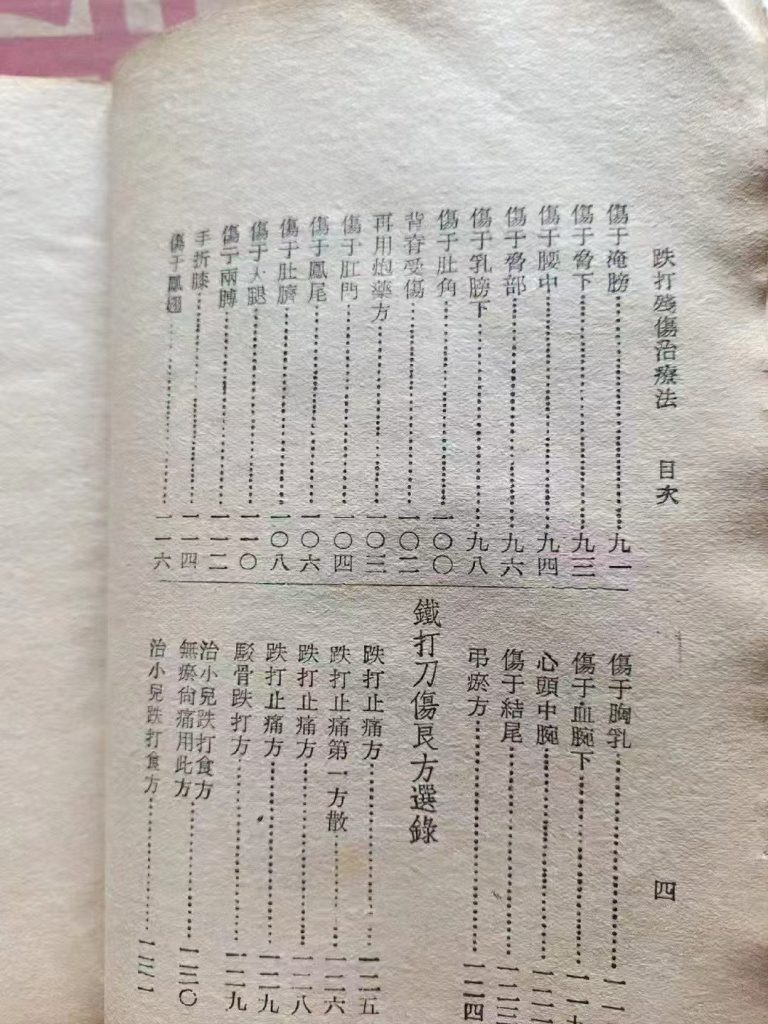 跌打殘傷治療法 目次 四
傷于淹膀………九一
傷于脅下………九三
傷于腰中………九四
傷于脅部………九六
傷于乳膀下………九八
傷于肚角………一〇〇
背脊受傷………一〇二
再用炮藥方………一〇三
傷于肛門………一〇四
傷于鳳尾………一〇六
傷于肚臍………一〇八
傷于大腿………一一〇
傷于兩膊………一一二
手折膝………一一四
傷于鳳翅………一一六
傷于胸乳………一一
傷于血腕下………一一
心頭中腕………一二
傷于結尾………一二
弔瘀方………一二四
鐵打刀傷良方選錄
跌打止痛方………一二五
跌打止痛第一方散………一二六
跌打止痛方………一二八
跌打止痛方………一二九
駁骨跌打方………一二九
治小兒跌打食方
無瘀尙痛用此方………一三〇
治小兒跌打食方………一三一